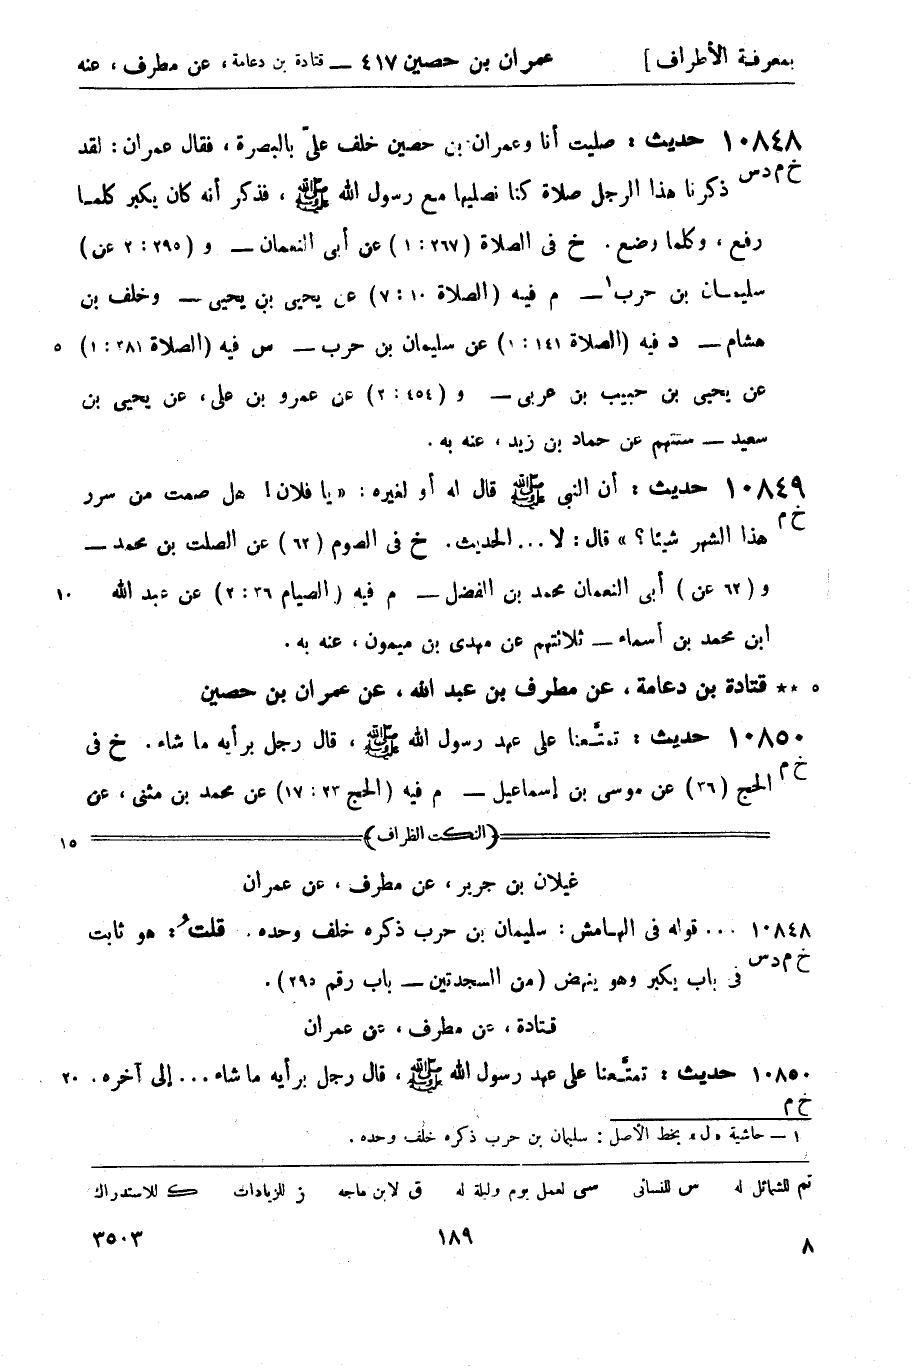 بمعرفة الأطراف] عمران بن حصين ٤١٧ — قتادة بن دعامة، عن مطرف، عنه
١٠٨٤٨ حديث: صليت أنا وعمران بن حصين خلف علىّ بالبصرة، فقال عمران: لقد
خ م د س ذكرنا هذا الرجل صلاة كنا نصليها مع رسول الله ﷺ، فذكر أنه كان يكبر كلمـا
رفع، وكلما وضع. خ فى الصلاة (٢٦٧: ١) عن أبى النعمان — و (٢٩٥: ٢ عن)
سليمـان بن حرب١ — م فيـه (الصلاة ١٠: ٧) عن يحيى بن يحيى — وخلف بن
هشام — د فيه (الصلاة ١٤١: ١) عن سليمان بن حرب — س فيه (الصلاة ٣٨١: ١) ٥
عن يحيى بن حبيب بن عربى — و (٤٥٤: ٢) عن عمرو بن على، عن يحيى بن
سعيد — ستتهم عن حماد بن زيد، عنه به.
١٠٨٤٩ حديث: أن النبى ﷺ قال له أو لغيره: «يا فلان! هل صمت من سرر
خ م هذا الشهر شيئا؟» قال: لا... الحديث. خ فى الصوم (٦٢) عن الصلت بن محمـد —
و (٦٢ عن) أبى النعمان محمد بن الفضل — م فيه (الصيام ٣٦: ٢) عن عبد الله ١٠
ابن محمد بن أسماء — ثلاثتهم عن مهدى بن ميمون، عنه به.
٥ ** قتادة بن دعامة، عن مطرف بن عبد الله، عن عمران بن حصين
١٠٨٥٠ حديث: تمتَّعنا على عهد رسول الله ﷺ، قال رجل برأيه ما شاء. خ فى
خ م الحج (٣٦) عن موسى بن إسماعيل — م فيه (الحج ٢٣: ١٧) عن محمد بن مثنى، عن
(النكت الظراف) ١٥
غيلان بن جرير، عن مطرف، عن عمران
١٠٨٤٨ ... قوله فى الهامش: سليمان بن حرب ذكره خلف وحده. قلتُ: هو ثابت
خ م د س فى باب يكبر وهو ينهض (من السجدتين — باب رقم ٢٩٥).
قتادة، عن مطرف، عن عمران
١٠٨٥٠ حديث: تمتَّعنا على عهد رسول الله ﷺ، قال رجل برأيه ما شاء... إلى آخره. ٢٠
خ م
١ — حاشية «ل» بخط الأصل: سليمان بن حرب ذكره خلف وحده.
تم للشمائل له س للنسائى سى لعمل يوم وليلة له ق لابن ماجه ز للزيادات ك للاستدراك
٨ ١٨٩ ٣٥٠٣